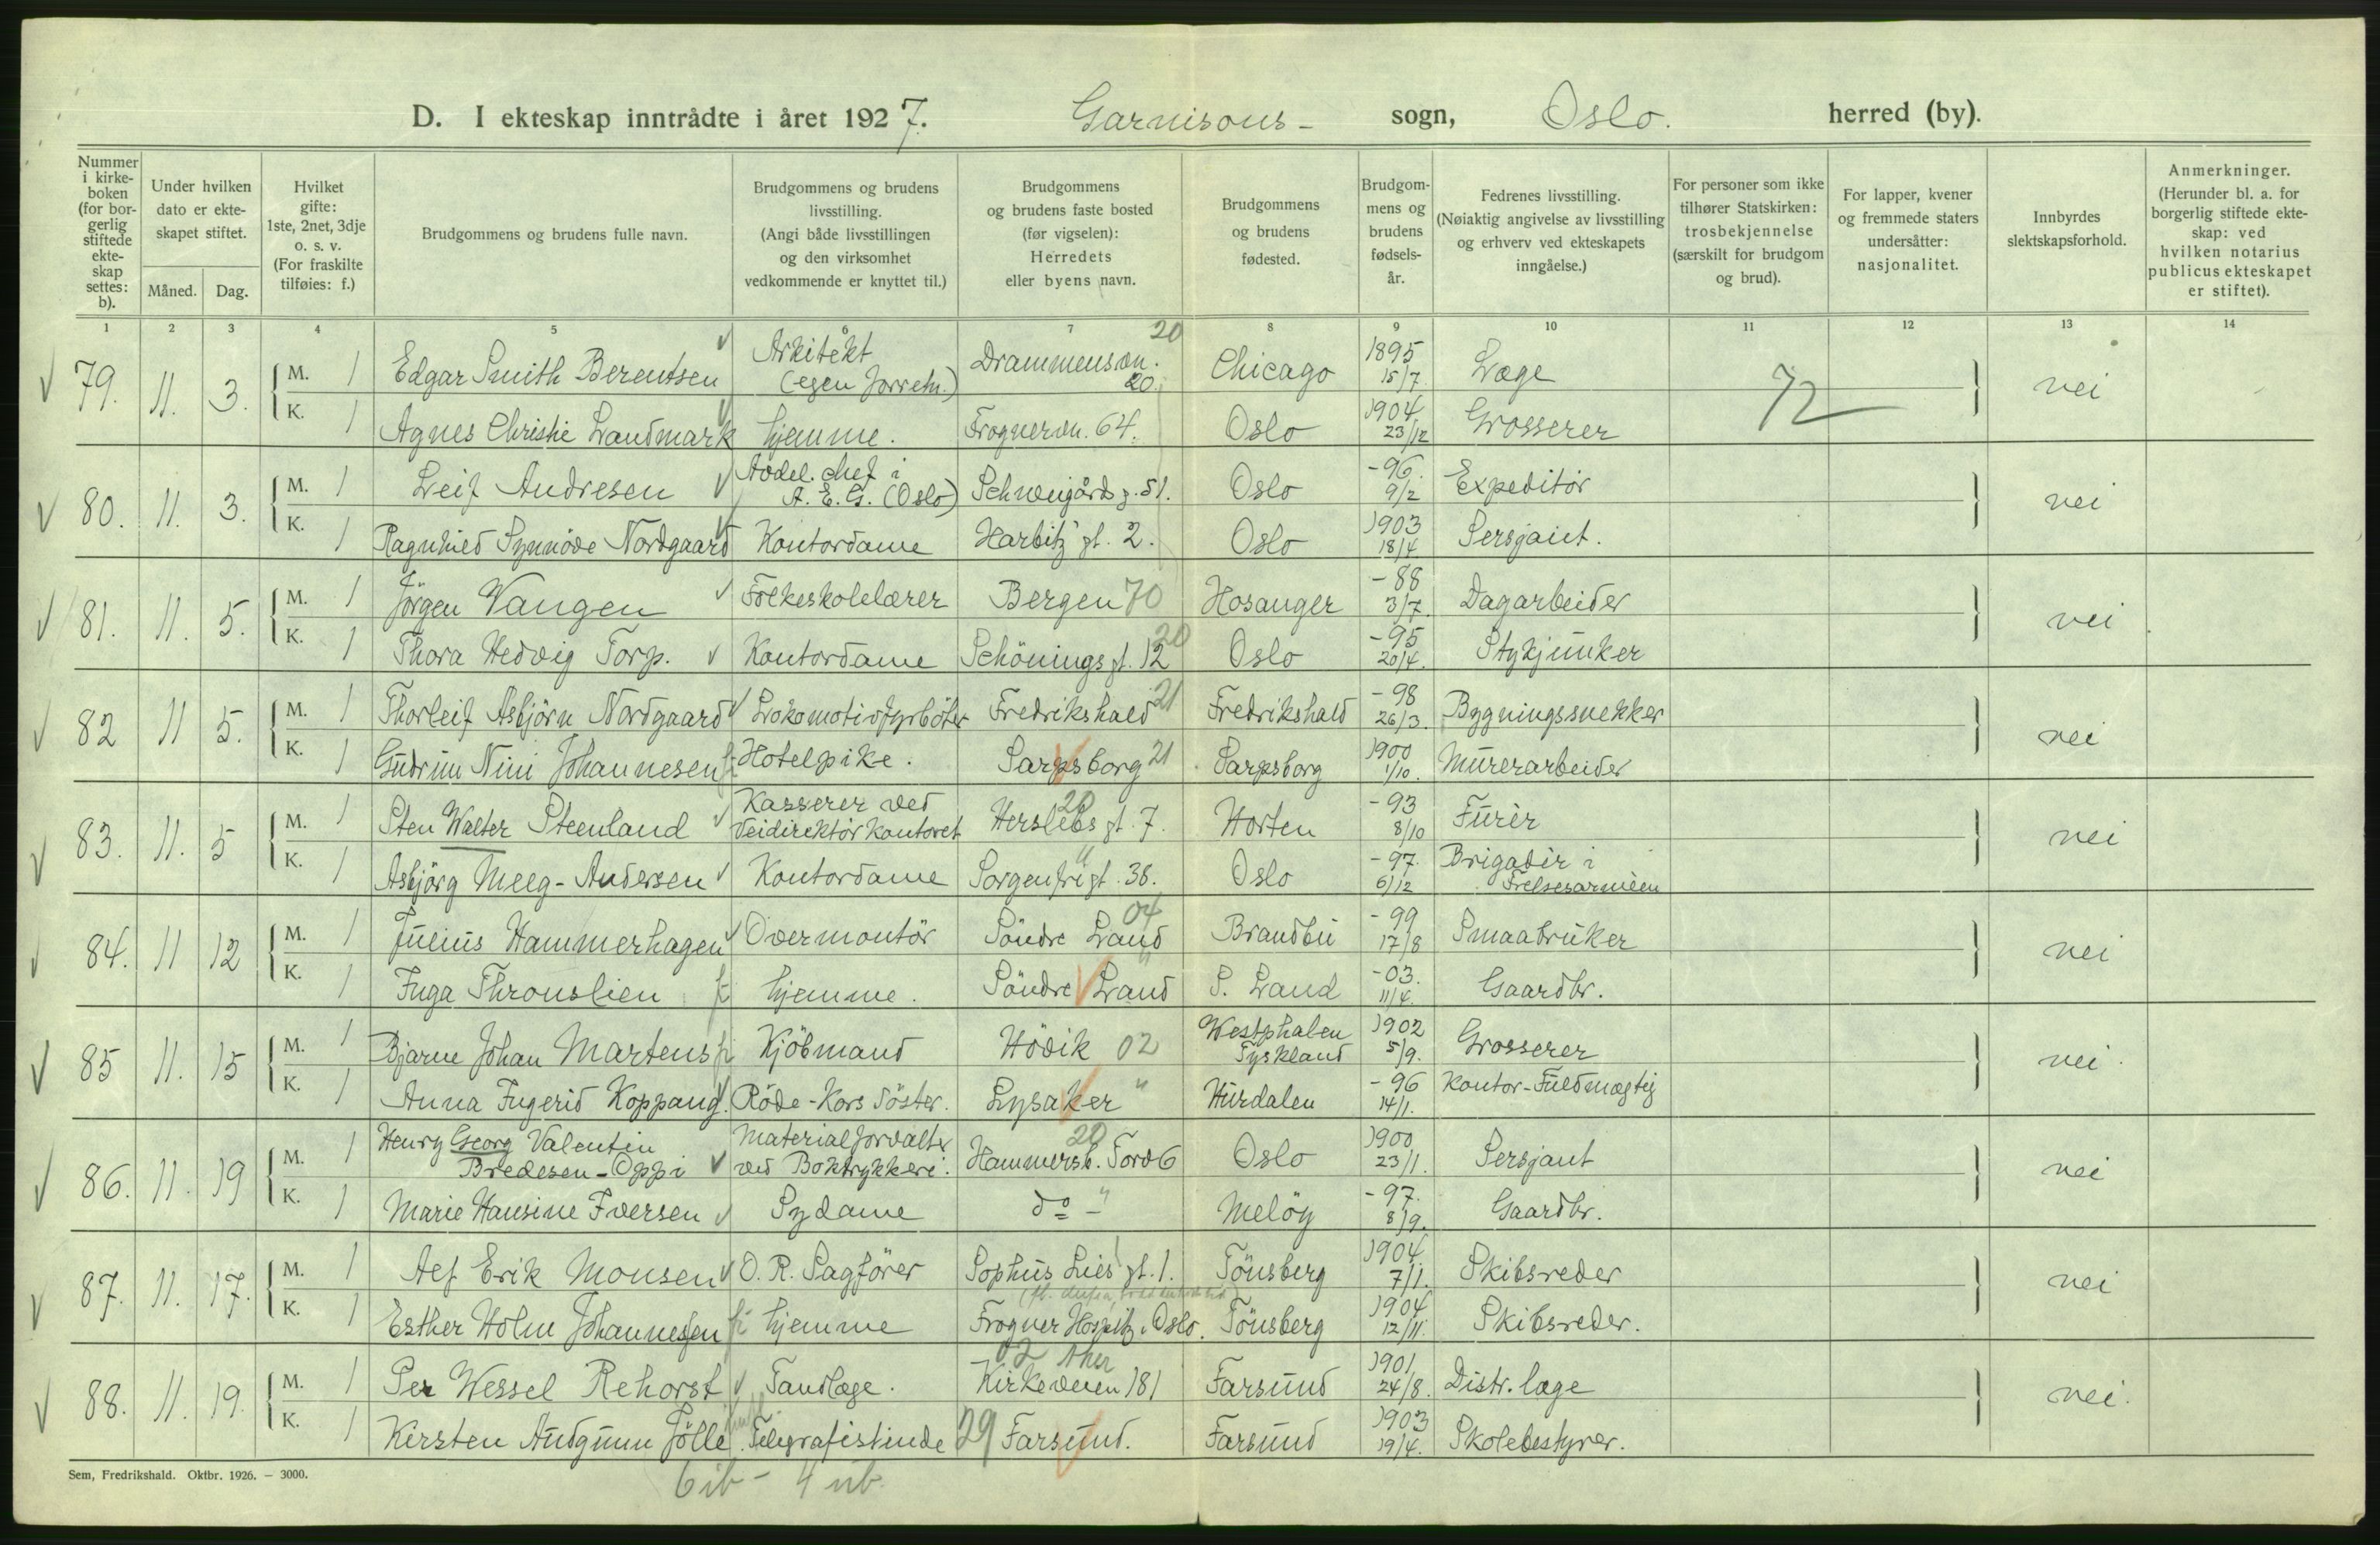 D. I ekteskap inntrådte i året 1927. Garnisons- sogn, Oslo. herred (by).
Nummer i kirke-boken (for bor-gerlig stiftede ekte-skap settes: b).
Under hvilken dato er ekte-skapet stiftet.
Måned. Dag.
Hvilket gifte: 1ste, 2net, 3dje o. s. v. (For fraskilte tilføies: f.)
Brudgommens og brudens fulle navn.
Brudgommens og brudens livsstilling. (Angi både livsstillingen og den virksomhet vedkommende er knyttet til.)
Brudgommens og brudens faste bosted (før vigselen): Herredets eller byens navn.
Brudgommens og brudens fødested.
Brudgom-mens og brudens fødsels-år.
Fedrenes livsstilling. (Nøiaktig angivelse av livsstilling og erhverv ved ekteskapets inngåelse.)
For personer som ikke tilhører Statskirken: trosbekjennelse (særskilt for brudgom og brud).
For lapper, kvener og fremmede staters undersåtter: nasjonalitet.
Innbyrdes slektskapsforhold.
Anmerkninger. (Herunder bl. a. for borgerlig stiftede ekte-skap: ved hvilken notarius publicus ekteskapet er stiftet).
1 2 3 4 5 6 7 8 9 10 11 12 13 14
79. 11. 3. M. 1 Edgar Smith Berentsen Arkitekt (egen forretn.) Drammensvn. 20. 20 Chicago 1895 15/7. Læge 72 nei
K. 1 Agnes Christie Landmark hjemme. Frognervn. 64. Oslo 1904 23/12 Grosserer
80. 11. 3. M. 1 Leif Andresen Avdel. chef i A. E. G. (Oslo) Schweigårds g. 51. Oslo -96. 9/2 Expeditör nei
K. 1 Ragnhild Synnöve Nordgaard Kontordame Harbitz' gt. 2. Oslo 1903 18/4 Sersjant.
81. 11. 5. M. 1 Jörgen Vangen Folkeskolelærer Bergen 70 Hosanger -88 3/7. Dagarbeider nei
K. 1 Thora Hedvig Torp. Kontordame Schönings gt. 12 20 Oslo -95 20/4. Stykjunker
82 11 5. M. 1 Thorleif Asbjörn Nordgaard Lokomotivfyrböter Fredrikshald 21 Fredrikshald -98 26/3. Bygningssnekker nei
K. 1 Gudrun Nini Johannesen Hotelpike. Sarpsborg 21 Sarpsborg 1900 1/10. Murerarbeider
83. 11. 5 M. 1 Sten Walter Steenland Kasserer ved Veidirektörkontoret Herslebs gt. 7. 20 Horten -93 8/10 Furér nei
K. 1 Asbjörg Meeg-Andersen Kontordame Sorgenfrigt. 38. " Oslo -97. 6/12 Brigadér i Frelsesarméen
84. 11 12 M. 1 Julius Hammerhagen Overmontör Söndre Land 04 Brandbu -99 17/8 Smaabruker nei
K. 1 Inga Thronslien hjemme. Söndre Land " S. Land -03. 11/4. Gaardbr.
85 11. 15 M. 1 Bjarne Johan Martens Kjöbmand Hövik 02 Westphalen Tyskland 1902 5/9. Grosserer nei
K. 1 Anna Ingerid Koppang. Röde-Kors söster. Lysaker " Hurdalen -96 14/1. Kontor-Fuldmægtig
86. 11. 19 M. 1 Henry Georg Valentin Bredesen-Oppi Materialforvalter ved Boktrykkeri. Hammersb. Torv 6 20 Oslo 1900 23/1. Sersjant nei
K. 1 Marie Hansine Iversen Sydame do - " Melöy -97. 8/9. Gaardbr.
87. 11. 17. M. 1 Alf Erik Monsen O. R. Sagförer Sophus Lies gt. 1. Tönsberg 1904 7/1. Skibsreder nei
K. 1 Esther Holm Johannesen hjemme Frogner Hospitz, Oslo. Tönsberg 1904 12/11. Skibsreder.
88. 11. 19. M. 1 Per Wessel Rehorst Tandlæge. 02 Aker Kirkeveien 181 Farsund 1901 24/8. Distr. læge nei.
K. 1 Kirsten Audgunn Jölle Telegrafistinde 29 Farsund. Farsund 1903 19/4. Skolebestyrer.
Sem, Fredrikshald. Oktbr. 1926. — 3000.
6 ib - 4 ub.